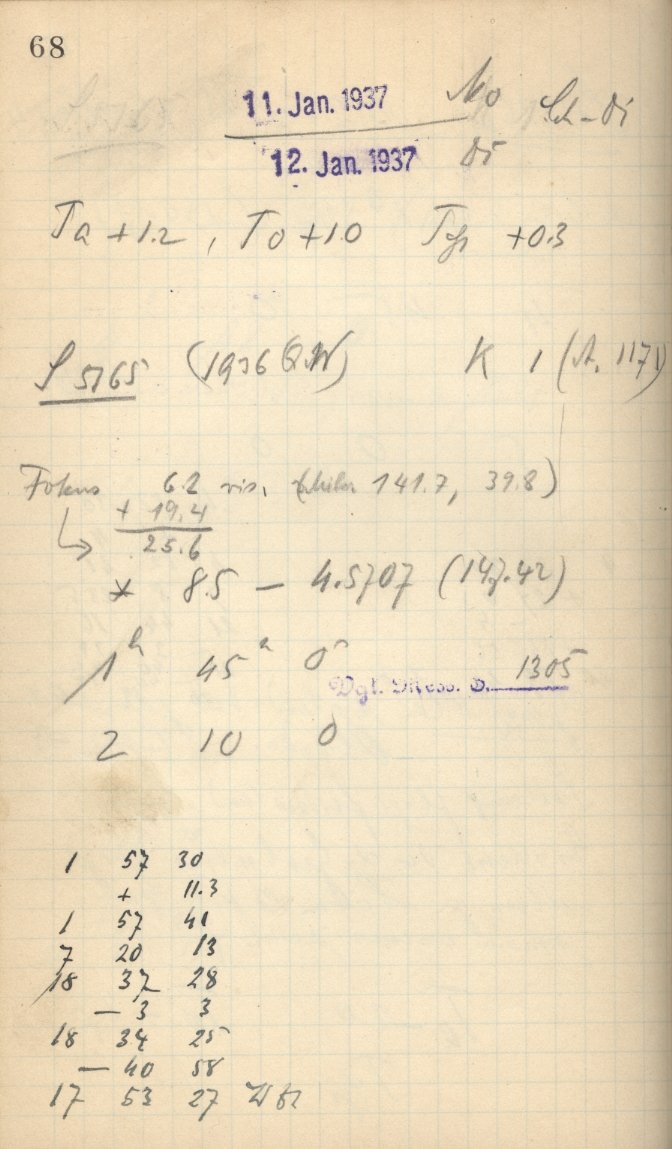 68
11. Jan. 1937 Mo
12. Jan. 1937 Di
Ta +1.2, To +1.0 +0.3
S 5765 (1936 QW) K 1 (A. 1171)
Fokus 6.2 vis. 141.7, 39.8)
+ 19.4
25.6
* 8.5 — 4.5707 (147.42)
1h 45m 0s
Vgl. Mess. S. 1305
2 10 0
1 57 30
+ 11.3
1 57 41
7 20 13
18 37 28
— 3 3
18 34 25
— 40 58
17 53 27